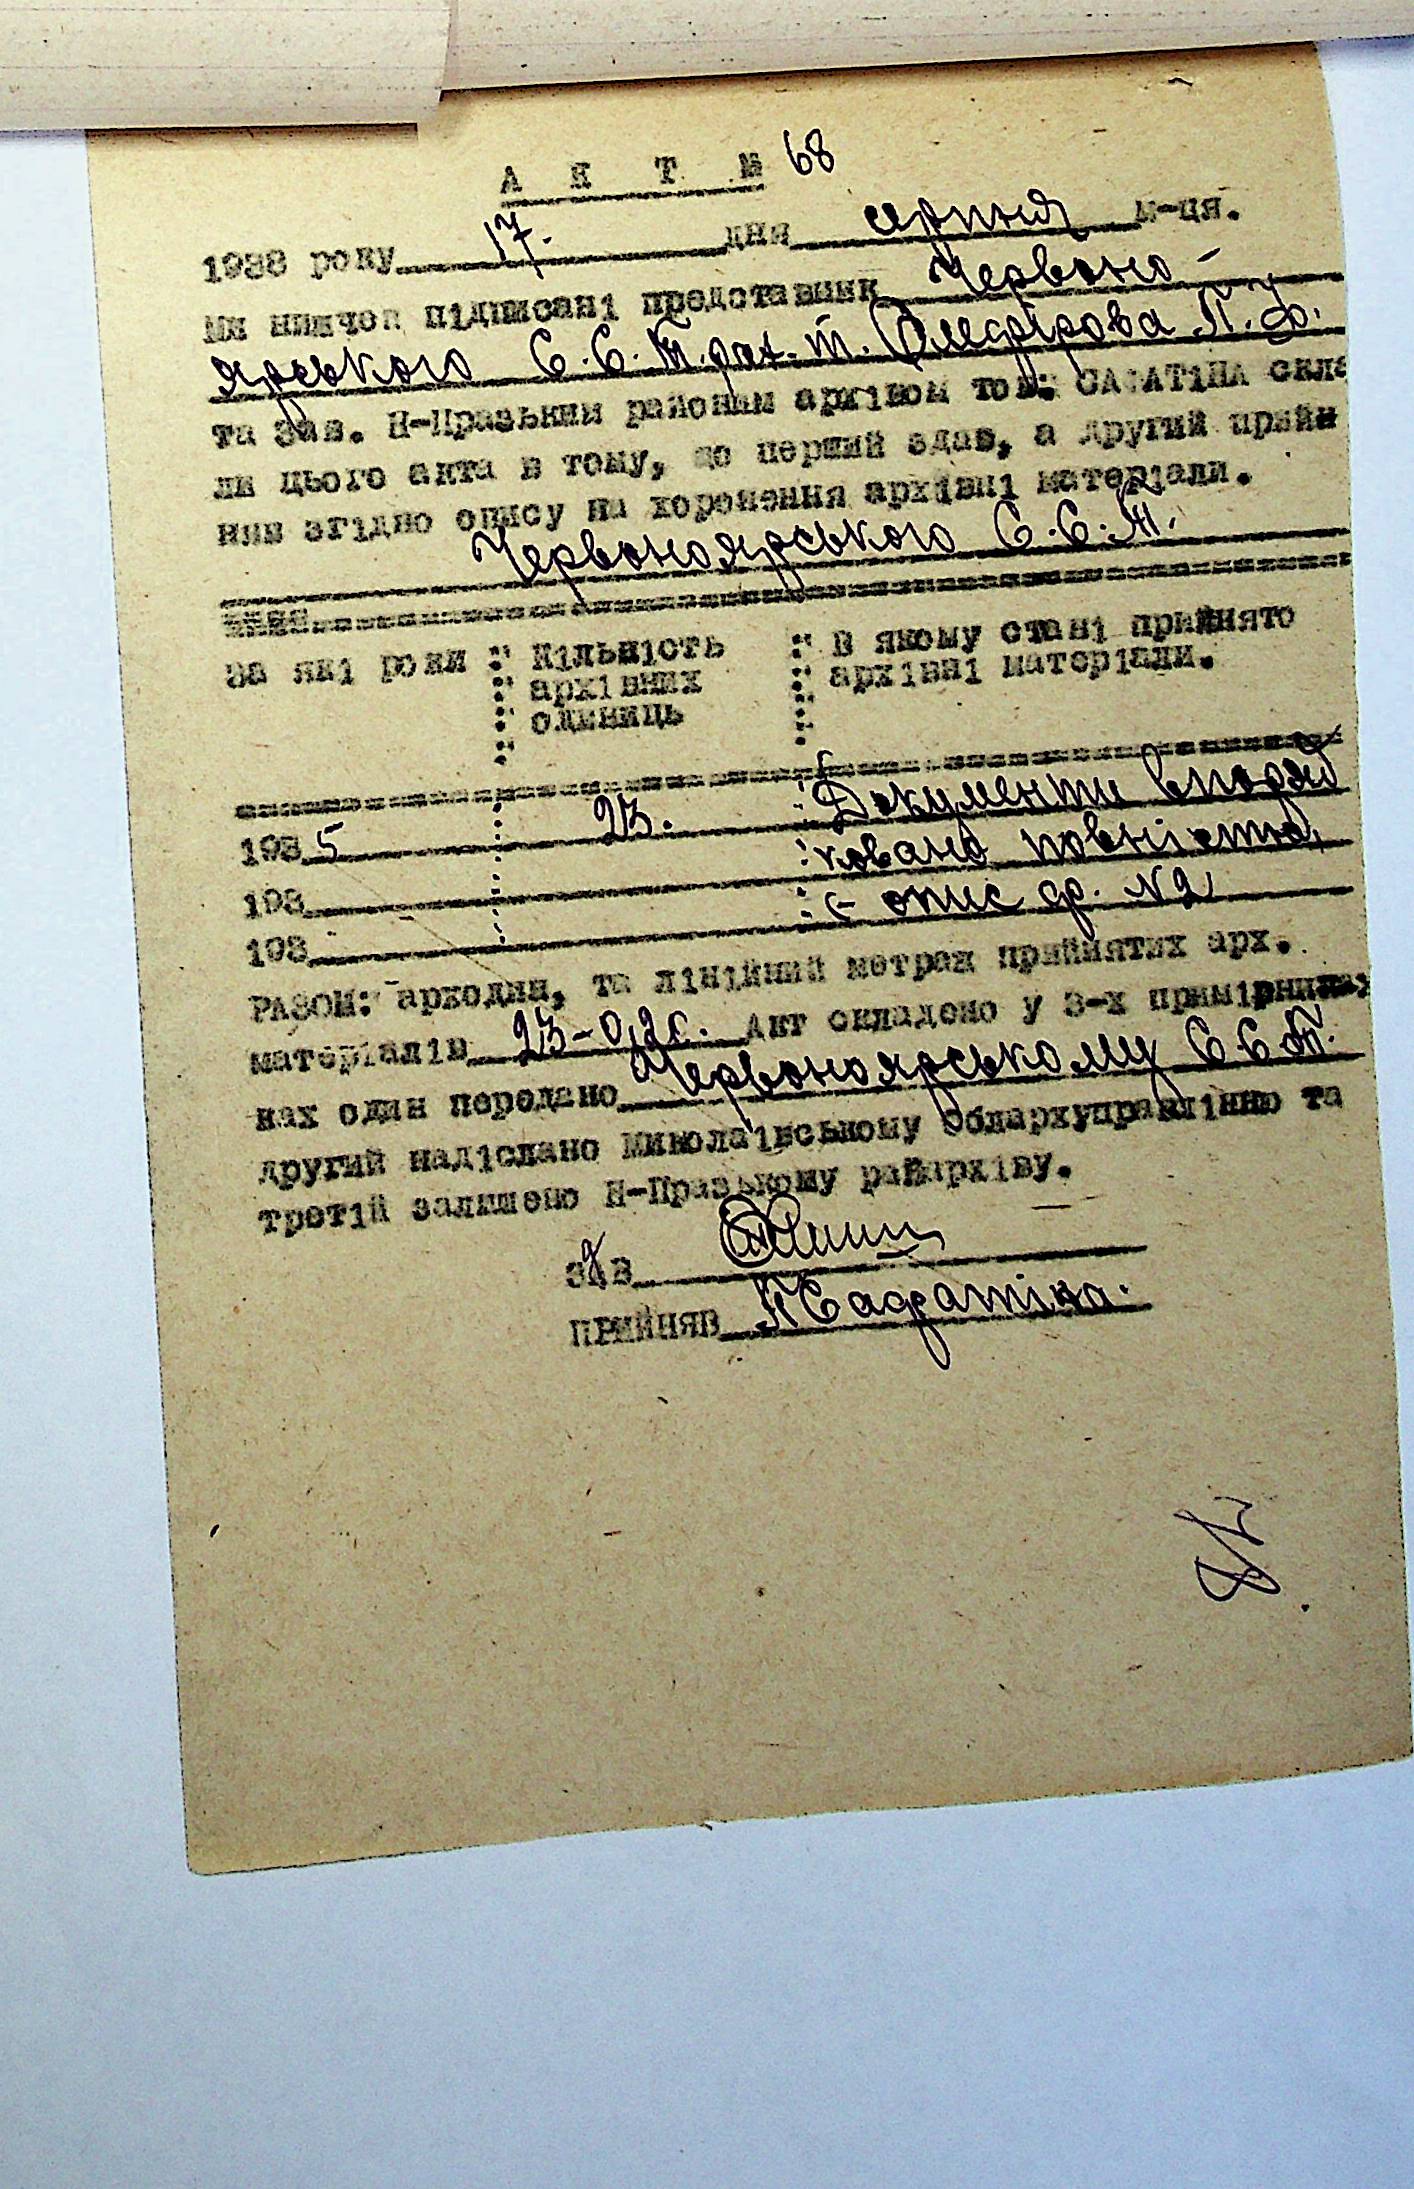 А К Т № 68
1938 року 17. дня серпня м-ця.
Ми нижчеп підписані представник Червоно-
ярського С.С.Т. рах. т. П.Ф.
та Зав. Н-Празьким районим архівом тов: САФАТІНА скла
ли цього акта в тому, що перший здав, а другий прийн
няв згідно опису на хоронення архівні матеріали.
Червоноярського С.С.Т.
За які роки : Кількість : В якому стані прийнято
архівних : архівні матеріали.
одиниць
1935 23. Документи впоряд
193 ковано повністю,
193 є опис ф. №2
РАЗОМ: аркодин, та лінійний метраж прийнятих арх.
матеріалів 23-0,20. Акт складено у 3-х примірни
ках один передано Червоноярському С.С.Т.
другий надіслано Миколаівському Облархуправлінню та
третій залишено Н-Празькому райархіву.
ЗДАВ
ПРИЙНЯВ Сафатіна.